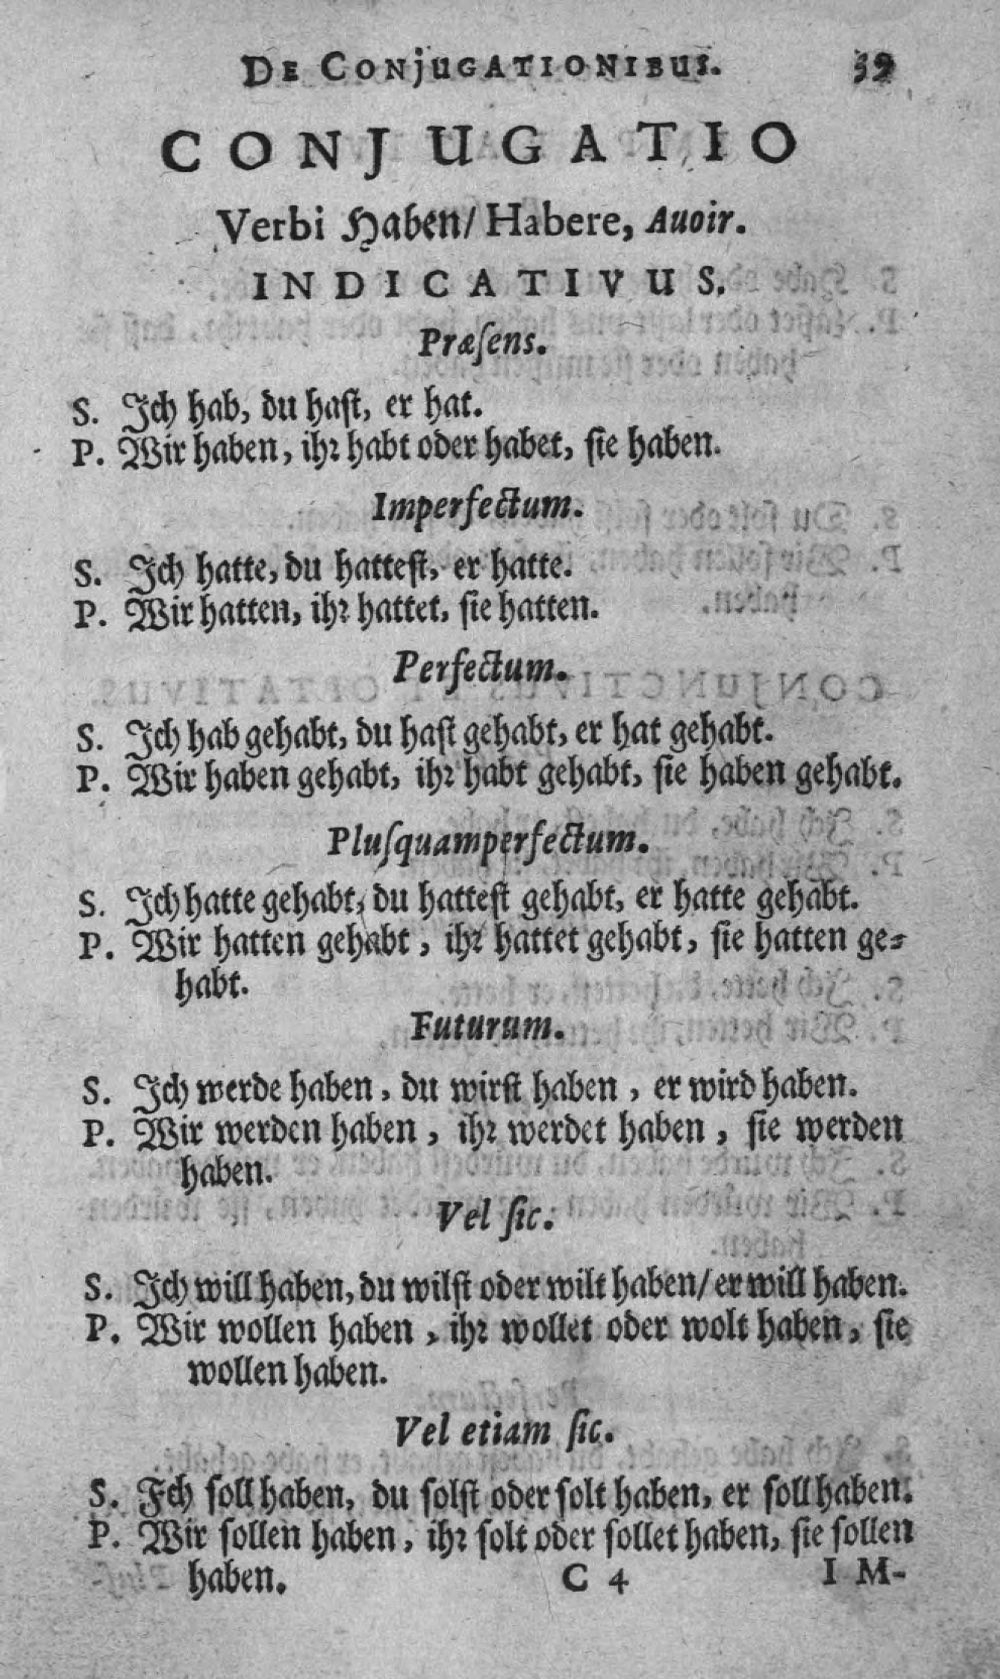 DE CONJUGATIONIBUS. 39
CONJUGATIO
Verbi Haben/ Habere, Auoir.
INDICATIVUS.
Præſens.
S. Ich hab, du haſt, er hat.
P. Wir haben, ihr habt oder habet, ſie haben.
Imperfectum.
S. Ich hatte, du hatteſt, er hatte.
P. Wir hatten, ihr hattet, ſie hatten.
Perfectum.
S. Ich hab gehabt, du haſt gehabt, er hat gehabt.
P. Wir haben gehabt, ihr habt gehabt, ſie haben gehabt.
Pluſquamperfectum.
S. Ich hatte gehabt, du hatteſt gehabt, er hatte gehabt.
P. Wir hatten gehabt, ihr hattet gehabt, ſie hatten ge-
habt.
Futurum.
S. Ich werde haben, du wirſt haben, er wird haben.
P. Wir werden haben, ihr werdet haben, ſie werden
haben.
Vel ſic.
S. Ich will haben, du wilſt oder wilt haben/ er will haben.
P. Wir wollen haben, ihr wollet oder wolt haben, ſie
wollen haben.
Vel etiam ſic.
S. Ich ſoll haben, du ſolſt oder ſolt haben, er ſoll haben.
P. Wir ſollen haben, ihr ſolt oder ſollet haben, ſie ſollen
haben. C 4 IM-